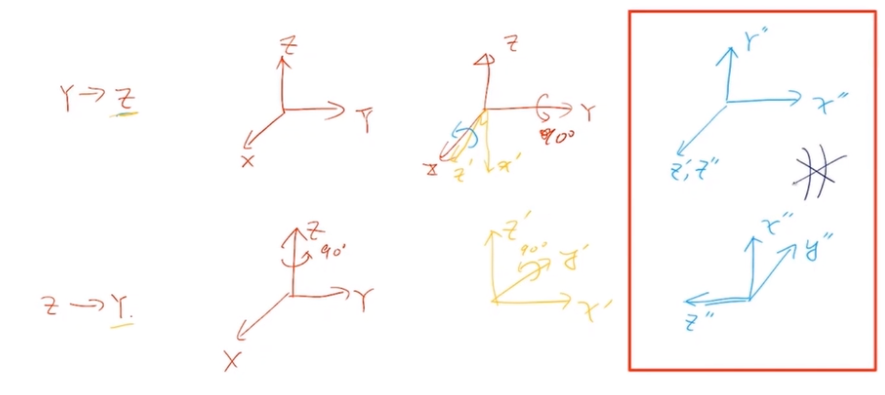 Y → Z
Z
Y
X
Z
Y
90°
X
Z'
X'
Y''
X''
Z', Z''
Z → Y.
Z
90°
Y
X
Z'
90°
y'
X'
X''
y''
Z''